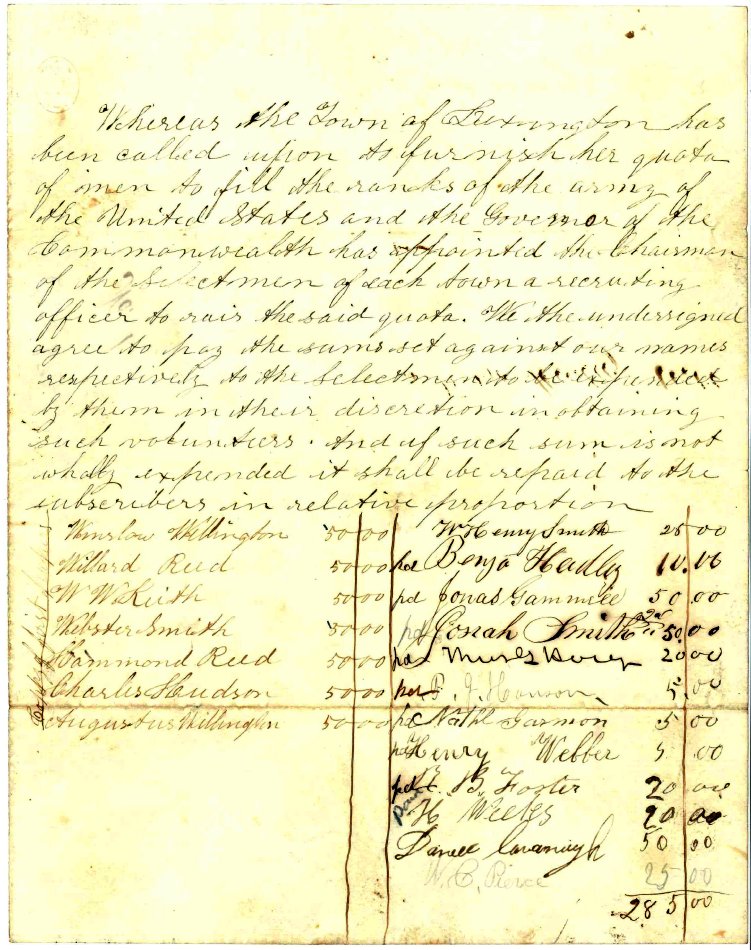 Whereas the Town of Lexington has
been called upon to furnish her quota
of men to fill the ranks of the army of
the United States and the Governor of the
Commonwealth has appointed the Chairman
of the Selectmen of each town a recruiting
officer to rais the said quota. We the undersigned
agree to pay the sums set against our names
respectively to the Selectmen to be expended
by them in their discretion in obtaining
such voluntiers. And if such sum is not
wholly expended it shall be repaid to the
subscribers in relative proportion
Winslow Wellington 50 00
Willard Reed 50 00
W W Keith 50 00
Webster Smith 50 00
Hammond Reed 50 00
Charles Hudson 50 00
Augustus Wellington 50 00
W Henry Smith 25 00
pd Benja Hadley 10.00
pd Jonas Gammell 50 00
pd Josiah Smith 50.00
pd 20 00
pd Hanson 5.00
pd Nathl Garmon 5 00
pd Henry Webber 5 00
pd B. Foster 20 00
H Weeks 20 00
Daniel Cavanagh 50 00
W. C. Pierce 25 00
285 00